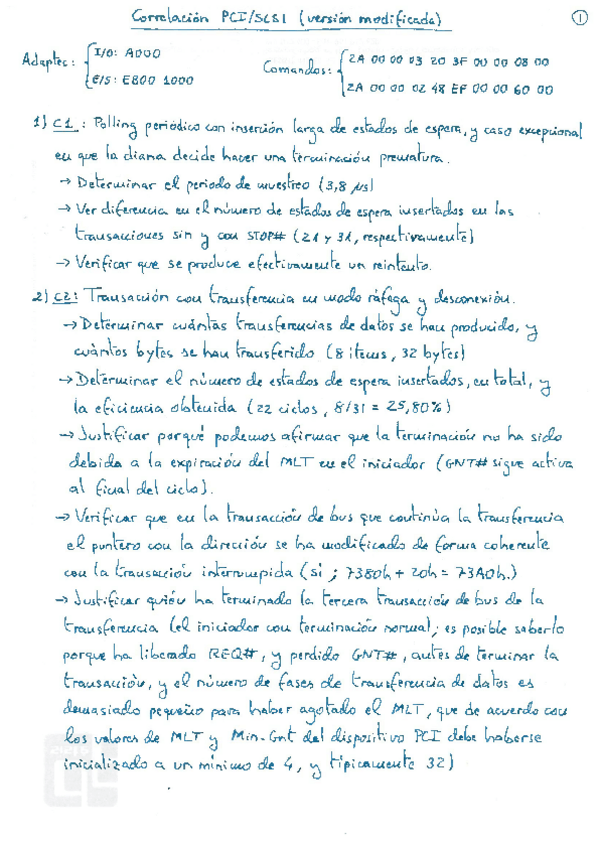 Correlación PCI/SCSI (versión modificada)
1
Adaptec: { I/O: A000
E/S: E800 1000
Comandos: { 2A 00 00 03 20 3F 00 00 08 00
2A 00 00 02 48 EF 00 00 60 00
1) C1: Polling periódico con inserción larga de estados de espera, y caso excepcional
en que la diana decide hacer una terminación prematura.
→ Determinar el periodo de muestreo (3,8 µs)
→ Ver diferencia en el número de estados de espera insertados en las
transacciones sin y con STOP# (21 y 31, respectivamente)
→ Verificar que se produce efectivamente un reintento.
2) C2: Transación con transferencia en modo ráfaga y desconexión.
→ Determinar cuántas transferencias de datos se han producido, y
cuántos bytes se han transferido (8 items, 32 bytes)
→ Determinar el número de estados de espera insertados, en total, y
la eficiencia obtenida (22 ciclos, 8/31 = 25,80%)
→ Justificar porqué podemos afirmar que la terminación no ha sido
debida a la expiración del MLT en el iniciador (GNT# sigue activa
al final del ciclo).
→ Verificar que en la transacción de bus que continúa la transferencia
el puntero con la dirección se ha modificado de forma coherente
con la transacción interrumpida (sí; 7380h + 20h = 73A0h.)
→ Justificar quién ha terminado la tercera transacción de bus de la
transferencia (el iniciador con terminación normal; es posible saberlo
porque ha liberado REQ#, y perdido GNT#, antes de terminar la
transacción, y el número de fases de transferencia de datos es
demasiado pequeño para haber agotado el MLT, que de acuerdo con
los valores de MLT y Min-Gnt del dispositivo PCI debe haberse
inicializado a un mínimo de 4, y típicamente 32)